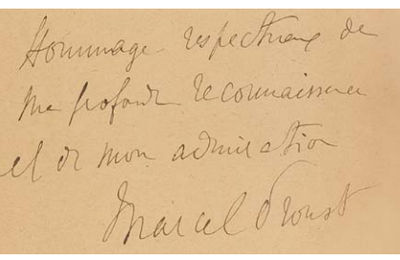 Hommage respectueux de
ma profonde reconnaissance
et de mon admiration
Marcel Proust